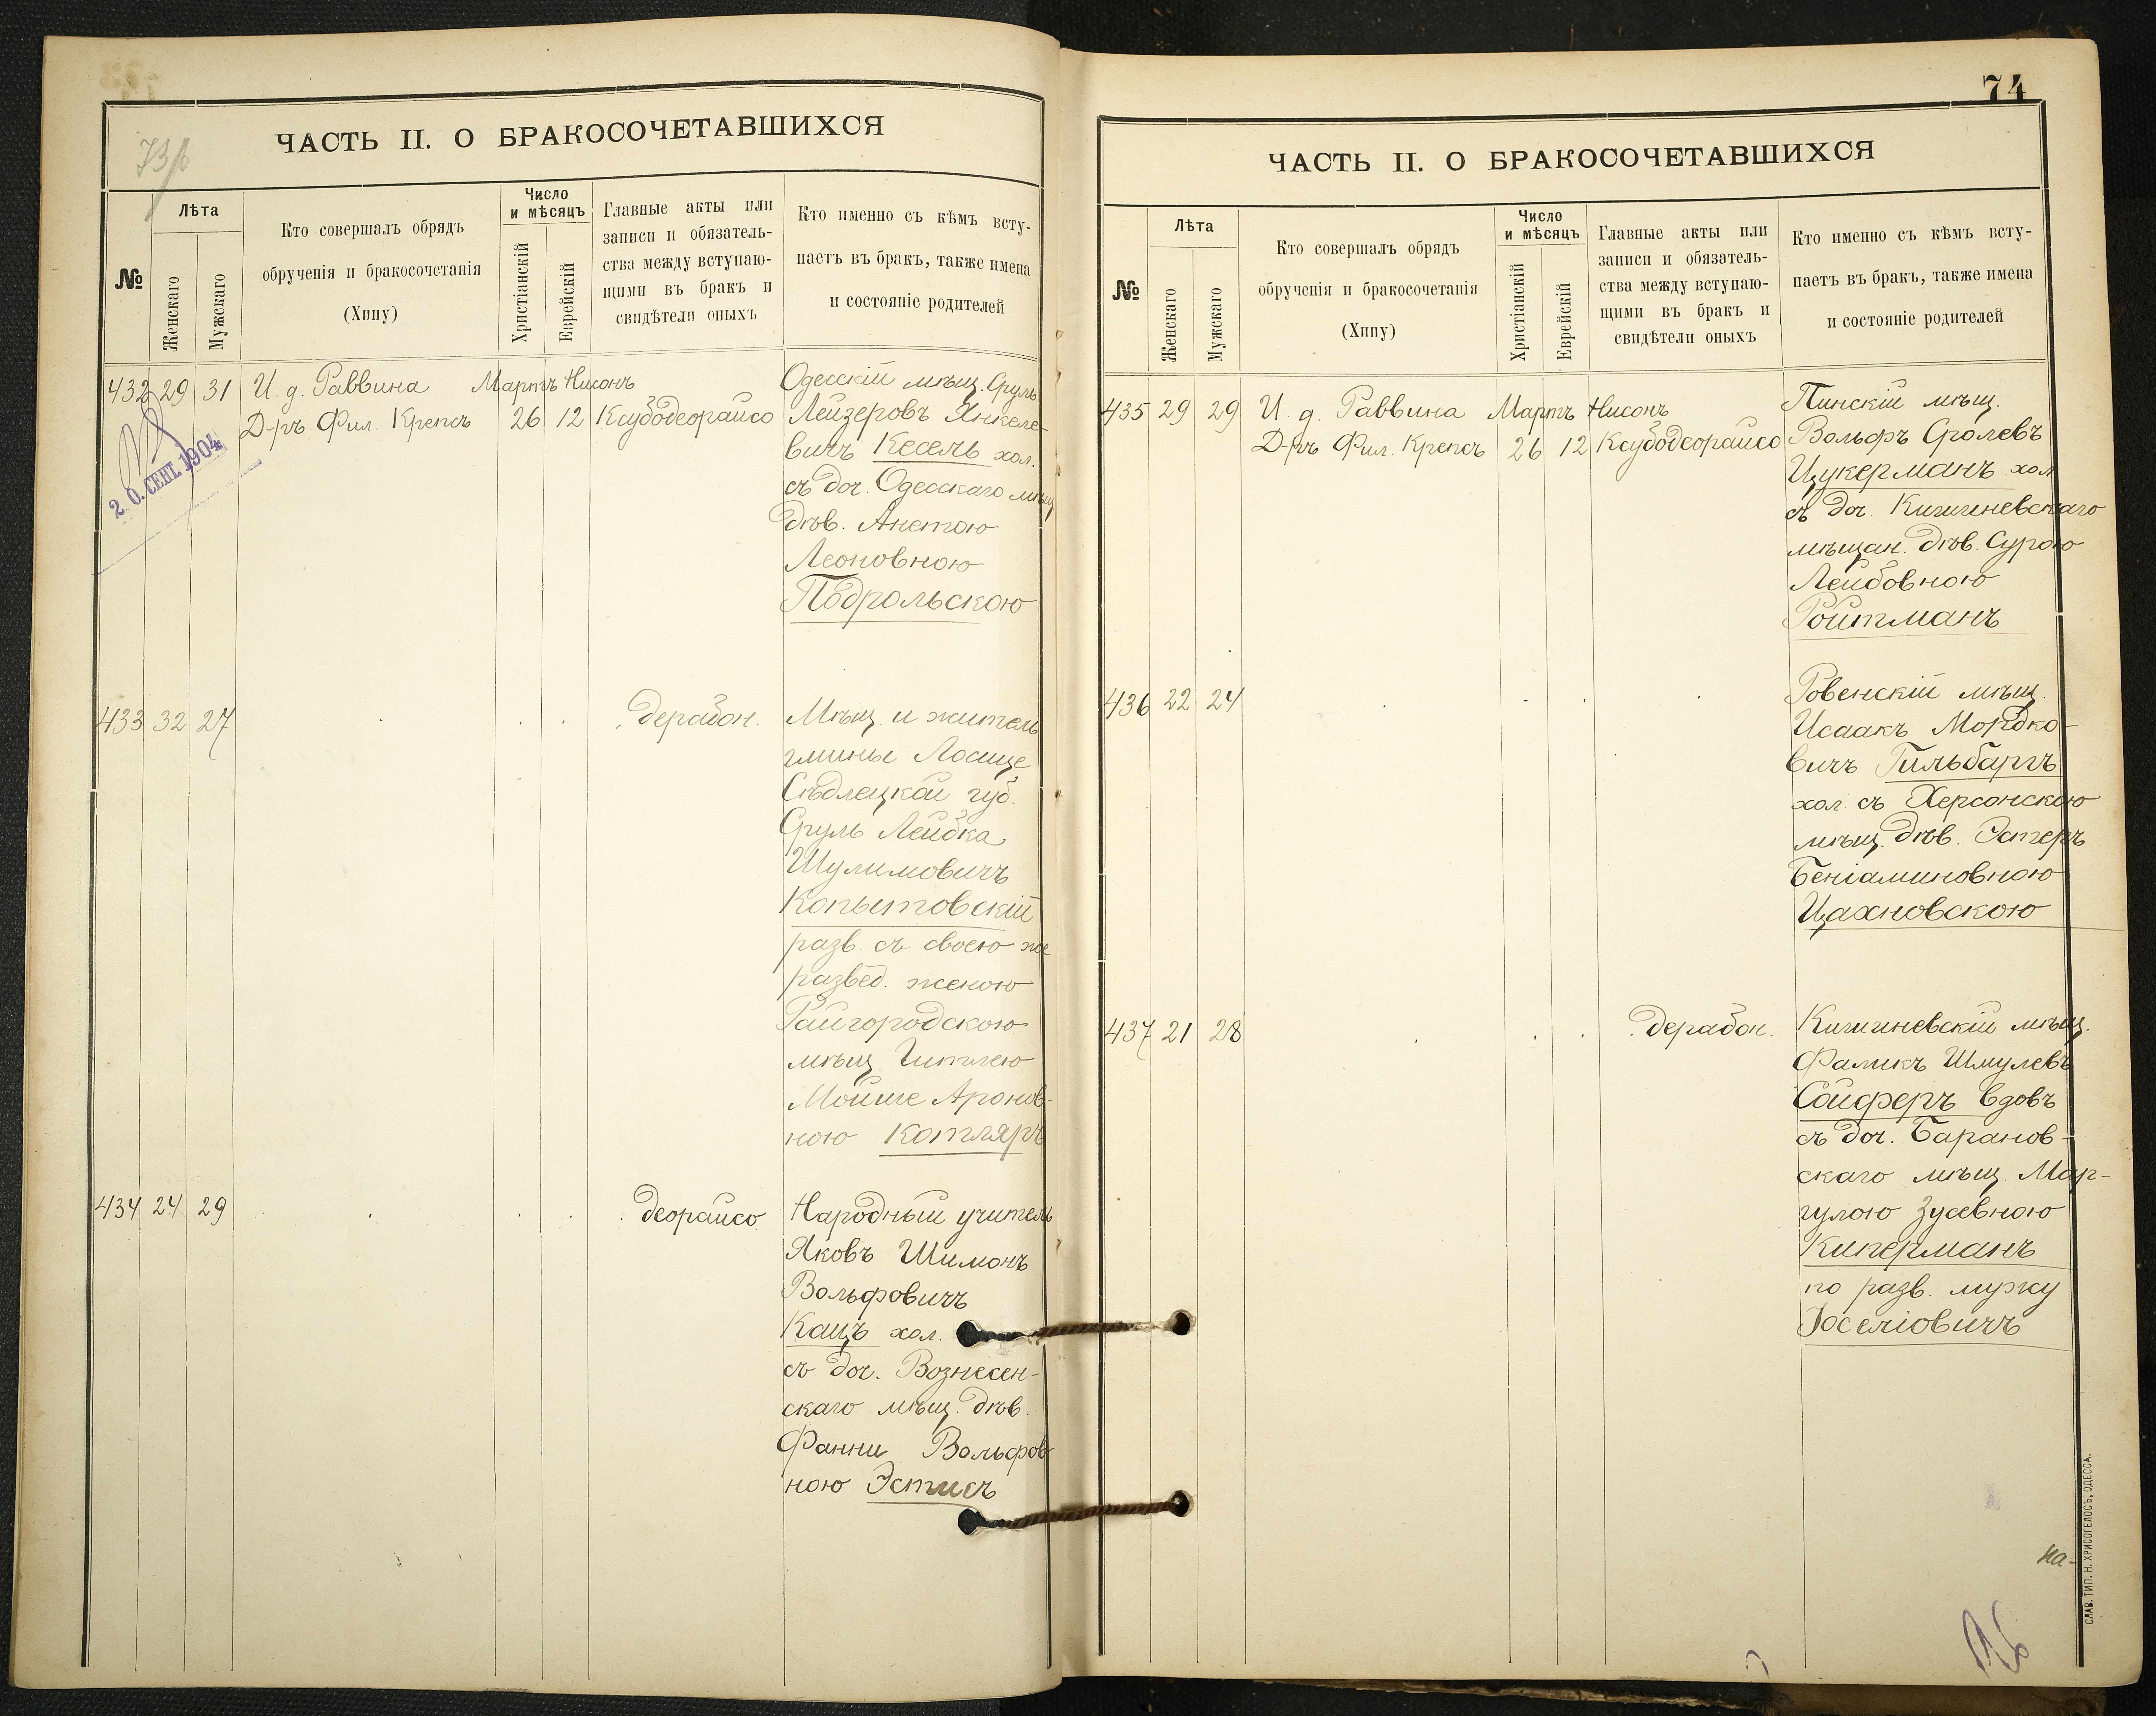 73/б
ЧАСТЬ II. О БРАКОСОЧЕТАВШИХСЯ
№
Лѣта
Женскаго
Мужскаго
Кто совершалъ обрядъ
обрученія и бракосочетанія
(Хипу)
Число
и мѣсяцъ
Христіанскій
Еврейскій
Главные акты или
записи и обязатель-
ства между вступаю-
щими въ бракъ и
свидѣтели оныхъ
Кто именно съ кѣмъ всту-
паетъ въ бракъ, также имена
и состояніе родителей
432 29 31 И. д. Раввина Мартъ Нисонъ
Д-ръ Фил. Крепсъ 26 12 Ксубодеорайсо
2. 0. СЕНТ. 1904
Одесскій мѣщ. Сруль
Лейзеровъ Янкеле-
вичъ Кесель хол.
съ доч. Одесскаго мѣщ
дѣв. Анетою
Леоновною
Подрольскою
433 32 27 дерабон.
Мѣщ. и житель
гмины Лосице
Сѣдлецкой губ.
Сруль Лейбка
Шулимовичъ
Копытовскій
разв. съ своею же
развед. женою
Райгородскою
мѣщ. Гитлею
Мойше Аронов-
ною Котляръ
434 24 29 деорайсо
Народный учитель
Яковъ Шимонъ
Вольфовичъ
Кацъ хол.
съ доч. Вознесен-
скаго мѣщ. дѣв.
Фанни Вольфов-
ною Эстисъ
74
ЧАСТЬ II. О БРАКОСОЧЕТАВШИХСЯ
№
Лѣта
Женскаго
Мужскаго
Кто совершалъ обрядъ
обрученія и бракосочетанія
(Хипу)
Число
и мѣсяцъ
Христіанскій
Еврейскій
Главные акты или
записи и обязатель-
ства между вступаю-
щими въ бракъ и
свидѣтели оныхъ
Кто именно съ кѣмъ всту-
паетъ въ бракъ, также имена
и состояніе родителей
435 29 29 И. д. Раввина Мартъ Нисонъ
Д-ръ Фил. Крепсъ 26 12 Ксубодеорайсо
Пинскій мѣщ.
Вольфъ Сролевъ
Цукерманъ хол
съ доч. Кишиневскаго
мѣщан. дѣв. Сурою
Лейбовною
Ройтманъ
436 22 24
Ровенскій мѣщ.
Исаакъ Мордко-
вичъ Гильбаргъ
хол. съ Херсонскою
мѣщ. дѣв. Эстеръ
Беніаминовною
Цахновскою
437 21 28 дерабон.
Кишиневскій мѣщ.
Фаликъ Шмулевъ
Сойферъ вдовъ
съ доч. Баранов-
скаго мѣщ. Мар-
гулою Зусевною
Киперманъ
по разв. мужу
Іоселіовичъ
на-
СЛАВ. ТИП. Н. ХРИСОГЕЛОСЪ, ОДЕССА.